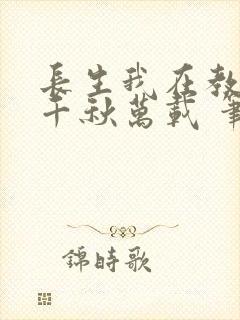 長生我在教
千秋萬載 筆
錦時歌